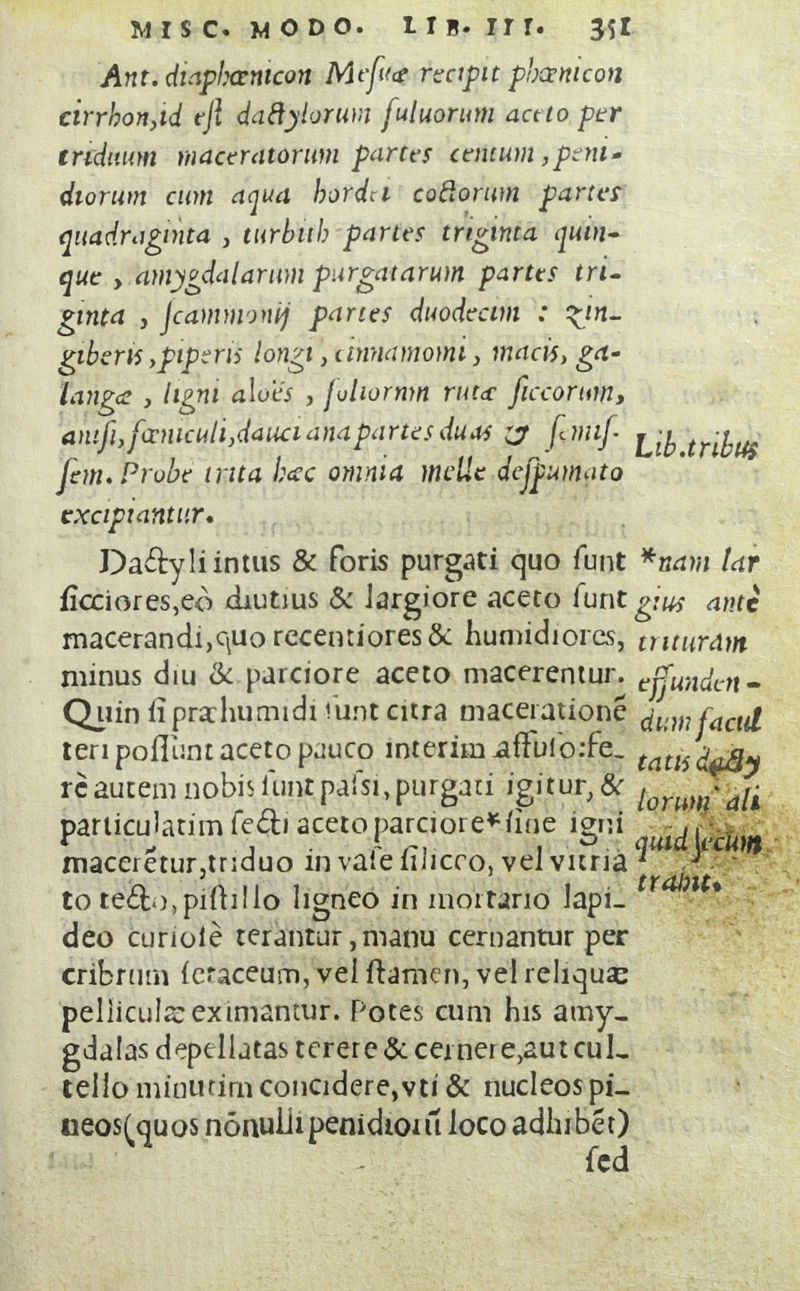 MISC. MODO. LIB. III. 351
Ant. diaphœnicon Mesuæ recipit phœnicon
cirrhon,id est dactylorum fuluorum aceto per
triduum maceratorum partes centum, peni-
diorum cum aqua hordei coctorum partes
quadraginta, turbith partes triginta quin-
que, amygdalarum purgatarum partes tri-
ginta, scammonij partes duodecim : zin-
giberis, piperis longi, cinnamomi, macis, ga-
langæ, ligni aloës, foliorum rutæ siccorum,
anisi, fœniculi, dauci ana partes duas & semis-
sem. Probe trita hæc omnia melle despumato
excipiantur.
Dactyli intus & foris purgati quo sunt
sicciores,eò diutius & largiore aceto sunt
macerandi,quo recentiores & humidiores,
minus diu & parciore aceto macerentur.
Quin si præhumidi sunt citra maceratione
teri possunt aceto pauco interim affuso:fe-
rè autem nobis sunt passi,purgati igitur, &
particulatim secti aceto parciore* sine igni
maceretur,triduo in vase siliceo, vel vitria
to tecto, pistillo ligneo in mortario lapi-
deo curiosè terantur, manu cernantur per
cribrum setaceum, vel stamen, vel reliquæ
pelliculæ eximantur. Potes cum his amy-
gdalas depellatas terere & cernere,aut cul-
tello minutim concidere,vti & nucleos pi-
neos(quos nōnulli penidiorū loco adhibēt)
sed
Lib.tribus
*nam lar
gius ante
trituram
effunden-
dum facul
tatis dacty
lorum ali
quid secum
trahit.